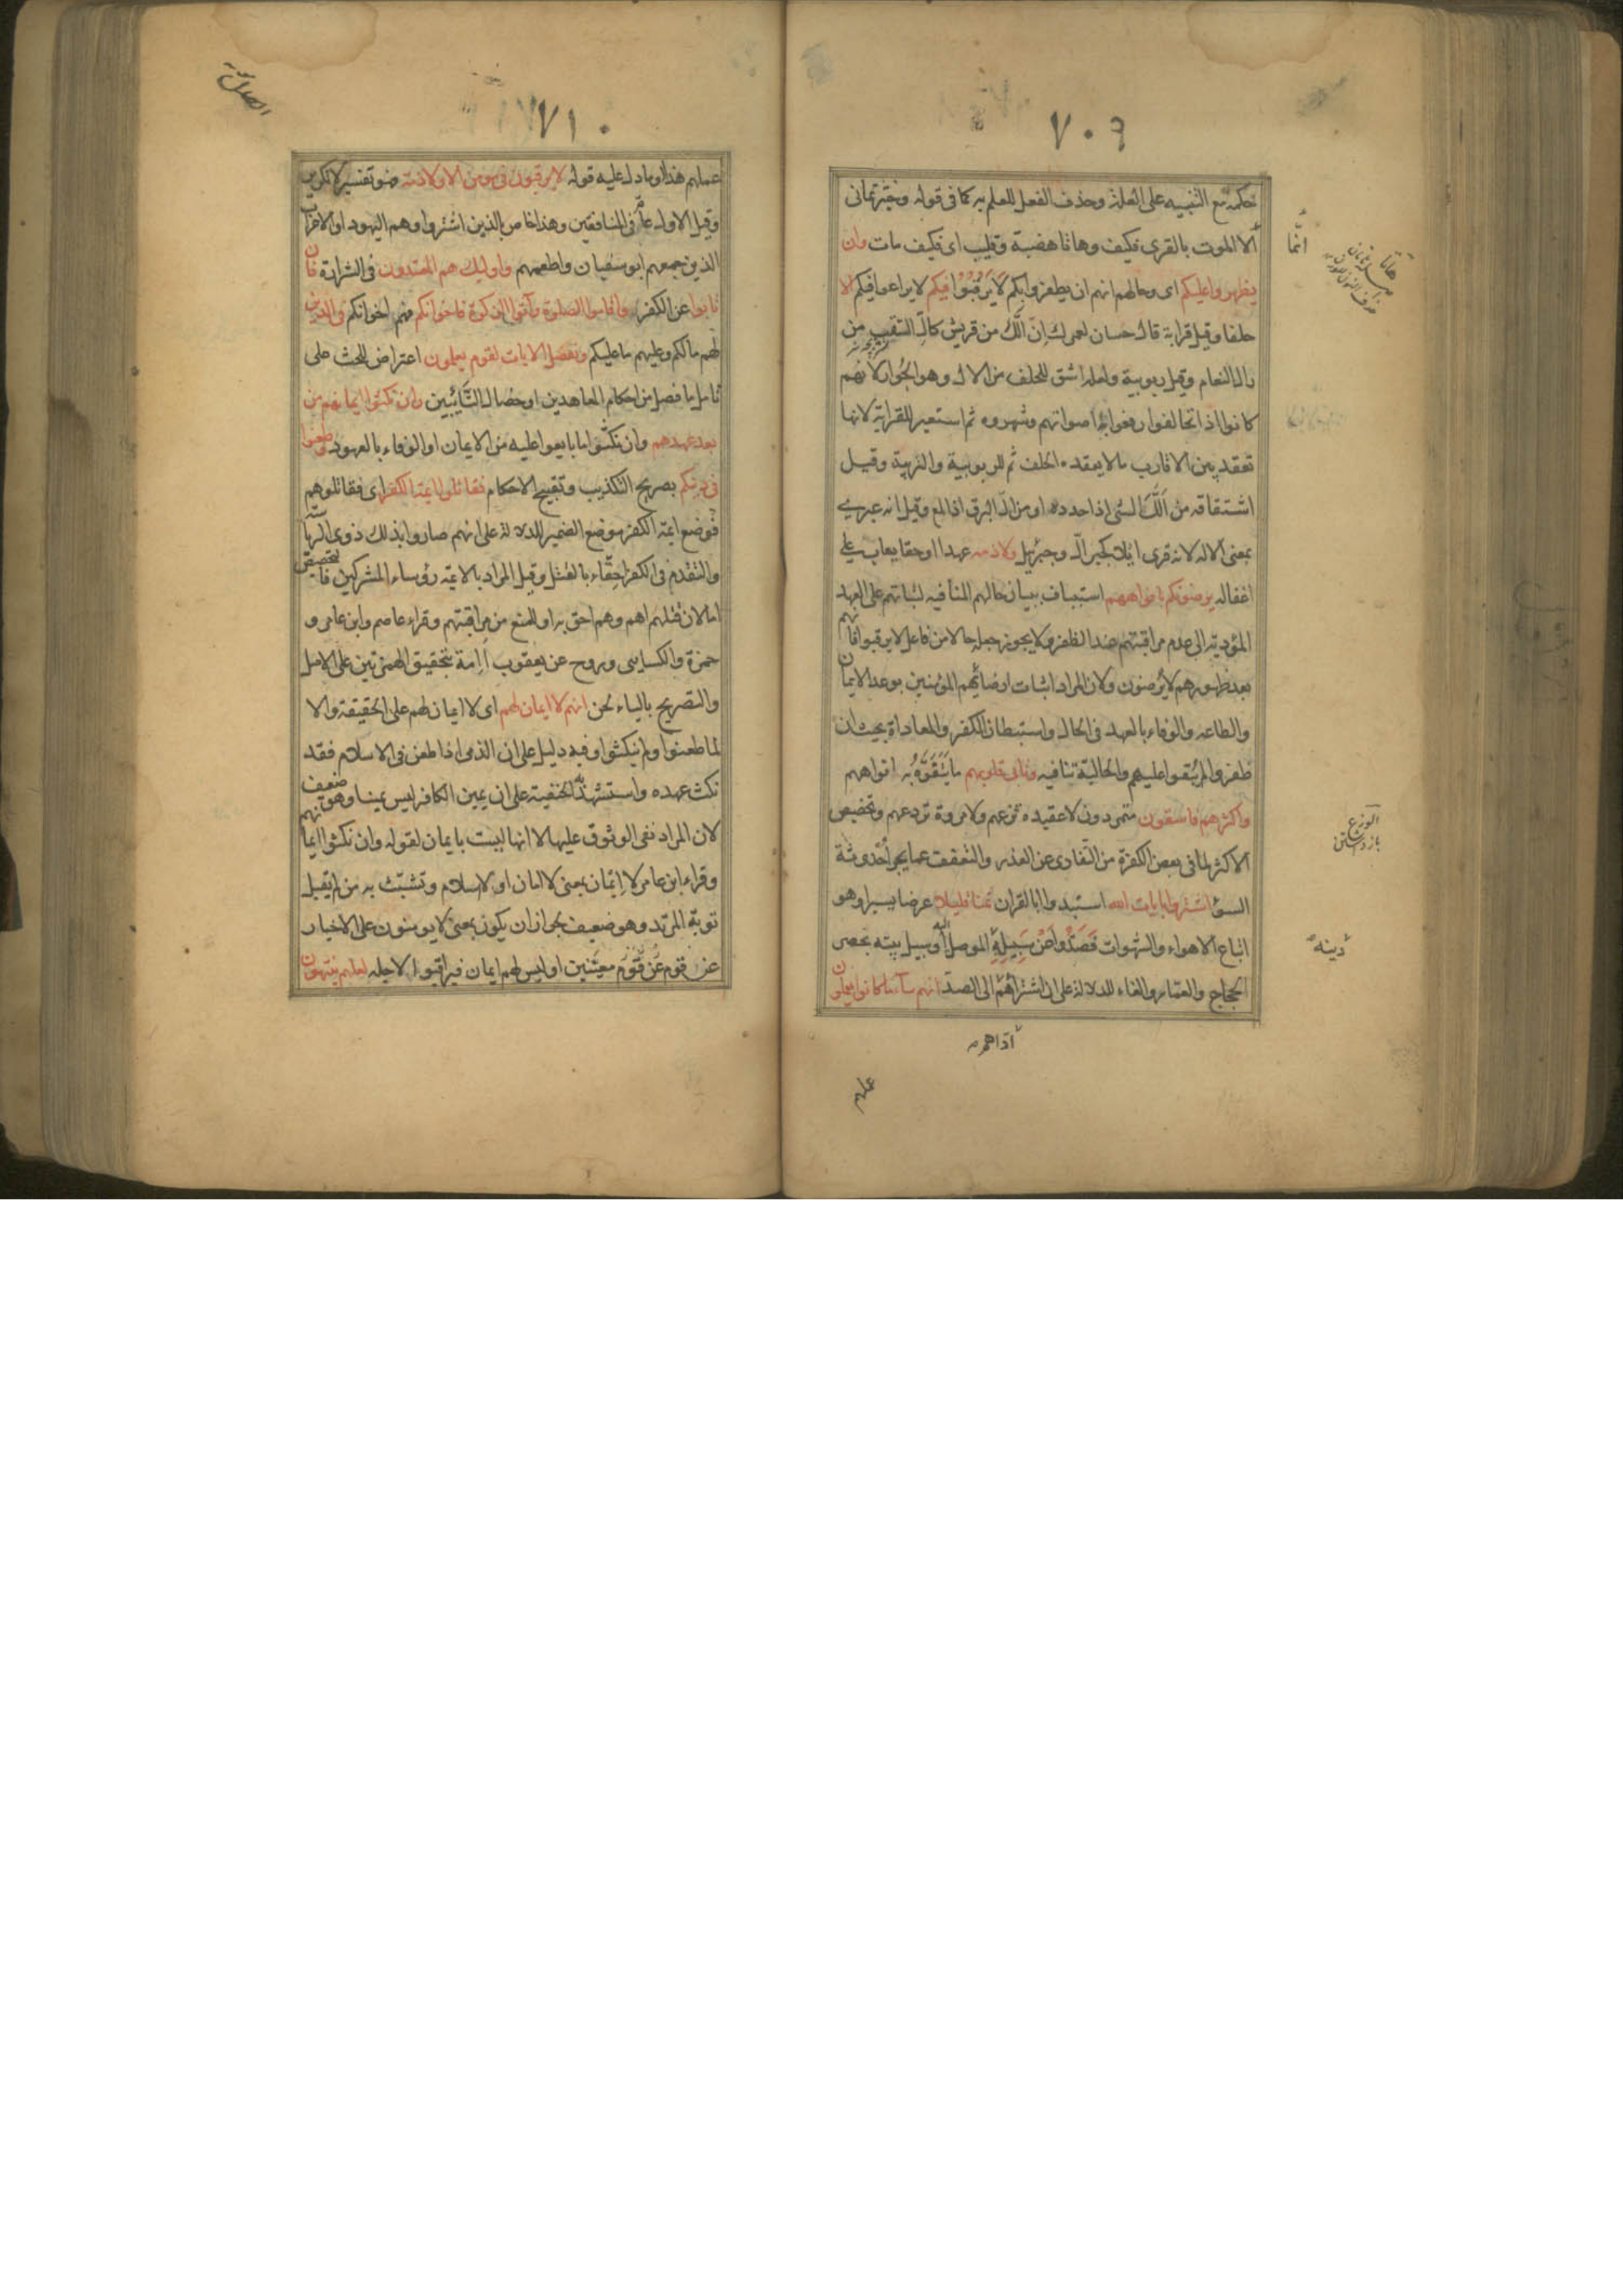 ٧٠٩
حكمه مع التنبيه على العلة وحذف الفعل للعلم به كما فى قوله وخبرتمانى
انما
ألا الموت بالقرى فكيف وهاتا هضبة وقليب اى فكيف مات وان
يظهروا عليكم اى وحالهم انهم ان يظفروا بكم لَا يَرْقُبُوْا فيكم لا يراعوا فيكم الا
حلفا وقيل قرابة قال حسان لعمرك اِنّ اَلّك من قريش كالّ السقب من
رال النعام وقيل ربوبية ولعله اشتق للحلف من الال وهو الجُوار لانهم
كانوا اذا تحالفوا رفعوا به اصواتهم وشهروه ثم استعير للقرابة لانها
تعقد بين الاقارب ما لا يعقده الحلف ثم للربوبية والتربية وقيل
اشتقاقه من اَلَّلَ الشى اذا حدده او من الّ البرق اذا لمع وقيل انه عبرى
بمعنى الاله لانه قرى ايلا كجبرالّ وجبرئيل ولا ذمه عهدا او حقا يعاب على
اغفاله يرضونكم بافواههم استيناف ببيان حالهم المنافيه لثباتهم على العهد
المؤديه الى عدم مراقبتهم عند الظفر ولا يجوز جعله حالا من فاعل لا يرقبوا فانهم
بعد ظهورهم لا يُرضون ولان المراد اثبات ارضائهم المؤمنين بوعد الايمان
والطاعه والوفاء بالعهد فى الحال واستبطان الكفر والمعاداة بحيث ان
ظفروا لم يُبقوا عليهم والحاليّة تنافيه وتابى قلوبهم ما يَتَفَوَّهُ به افواههم
واكثرهم فاسقون متمردون لا عقيده تزعهم ولا مروة تردعهم وتخصيص
الوزع
بازداشتن
الاكثر لما فى بعض الكفرة من التفادى عن الغدر والتعفف عما يجر اُحْدوثة
السوء اشتروا بايات الله استبدلوا بالقران ثمنا قليلا عرضا يسيرا وهو
اتباع الاهواء والشهوات فَصَدُّوا عَنْ سَبِيلِهِ الموصل اليه او سبيل بيته بحصر
دينه
الحجاج والعمّار والفاء للدلالة على ان اشتراهم الى الصدّ انهم ساء ما كانوا يعملون
عملهم
٧١٠
عملهم هذا او ما دل عليه قوله لا يرقبون فى مومن الا ولا ذمة فهو تفسير لا تكرير
وقيل الاول عامّ فى المنافقين وهذا خاص بالذين اشتروا وهم اليهود او الاعراب
الذين جمعهم ابو سفيان واطعمهم واوليك هم المعتدون فى الشرارة فان
تابوا عن الكفر واقاموا الصلوة وآتوا الزكوة فاخوانكم فهم اخوانكم فى الدين
لهم ما لكم وعليهم ما عليكم ونفصل الايات لقوم يعلمون اعتراض للحث على
تامل ما فصل من احكام المعاهدين او خصال التّائِبين وان نكثوا ايمانهم من
بعد عهدهم وان نكثوا ما بايعوا عليه من الايمان او الوفاء بالعهود وطعنوا
فى دينكم بصريح التكذيب وتقبيح الاحكام فقاتلوا ايمة الكفر اى فقاتلوهم
فوضع ايمة الكفر موضع الضمير للدلالة على انهم صاروا بذلك ذوى الرياسة
والتقدم فى الكفر احِقّاء بالقتل وقيل المراد بالايمة رؤساء المشركين فالتخصيص
اما لان قتلهم اهم وهم احق به او للمنع من مراقبتهم وقراء عاصم وابن عامر و
حمزة والكسايى وروح عن يعقوب اَاِمة بتحقيق الهمزتين على الاصل
والتصريح بالياء لحن انهم لا ايمان لهم اى لا ايمان لهم على الحقيقة والا
لما طعنوا ولم ينكثوا وفيه دليل على ان الذمى اذا طعن فى الاسلام فقد
نكث عهده واستشهد به الحنفية على ان يمين الكافر ليس يمينا وهو ضعيف
لان المراد نفى الوثوق عليها لا انها ليست بايمان لقوله وان نكثوا ايمانهم
وقراء ابن عامر لا اِيمان بمعنى لا امان او لا اسلام وتشبّث به من لم يقبل
توبة المرتد وهو ضعيف لجواز ان يكون بمعنى لا يومنون على الاخبار
عن قوم معينين او ليس لهم ايمان فيراقبوا لاجله لعلهم ينتهون